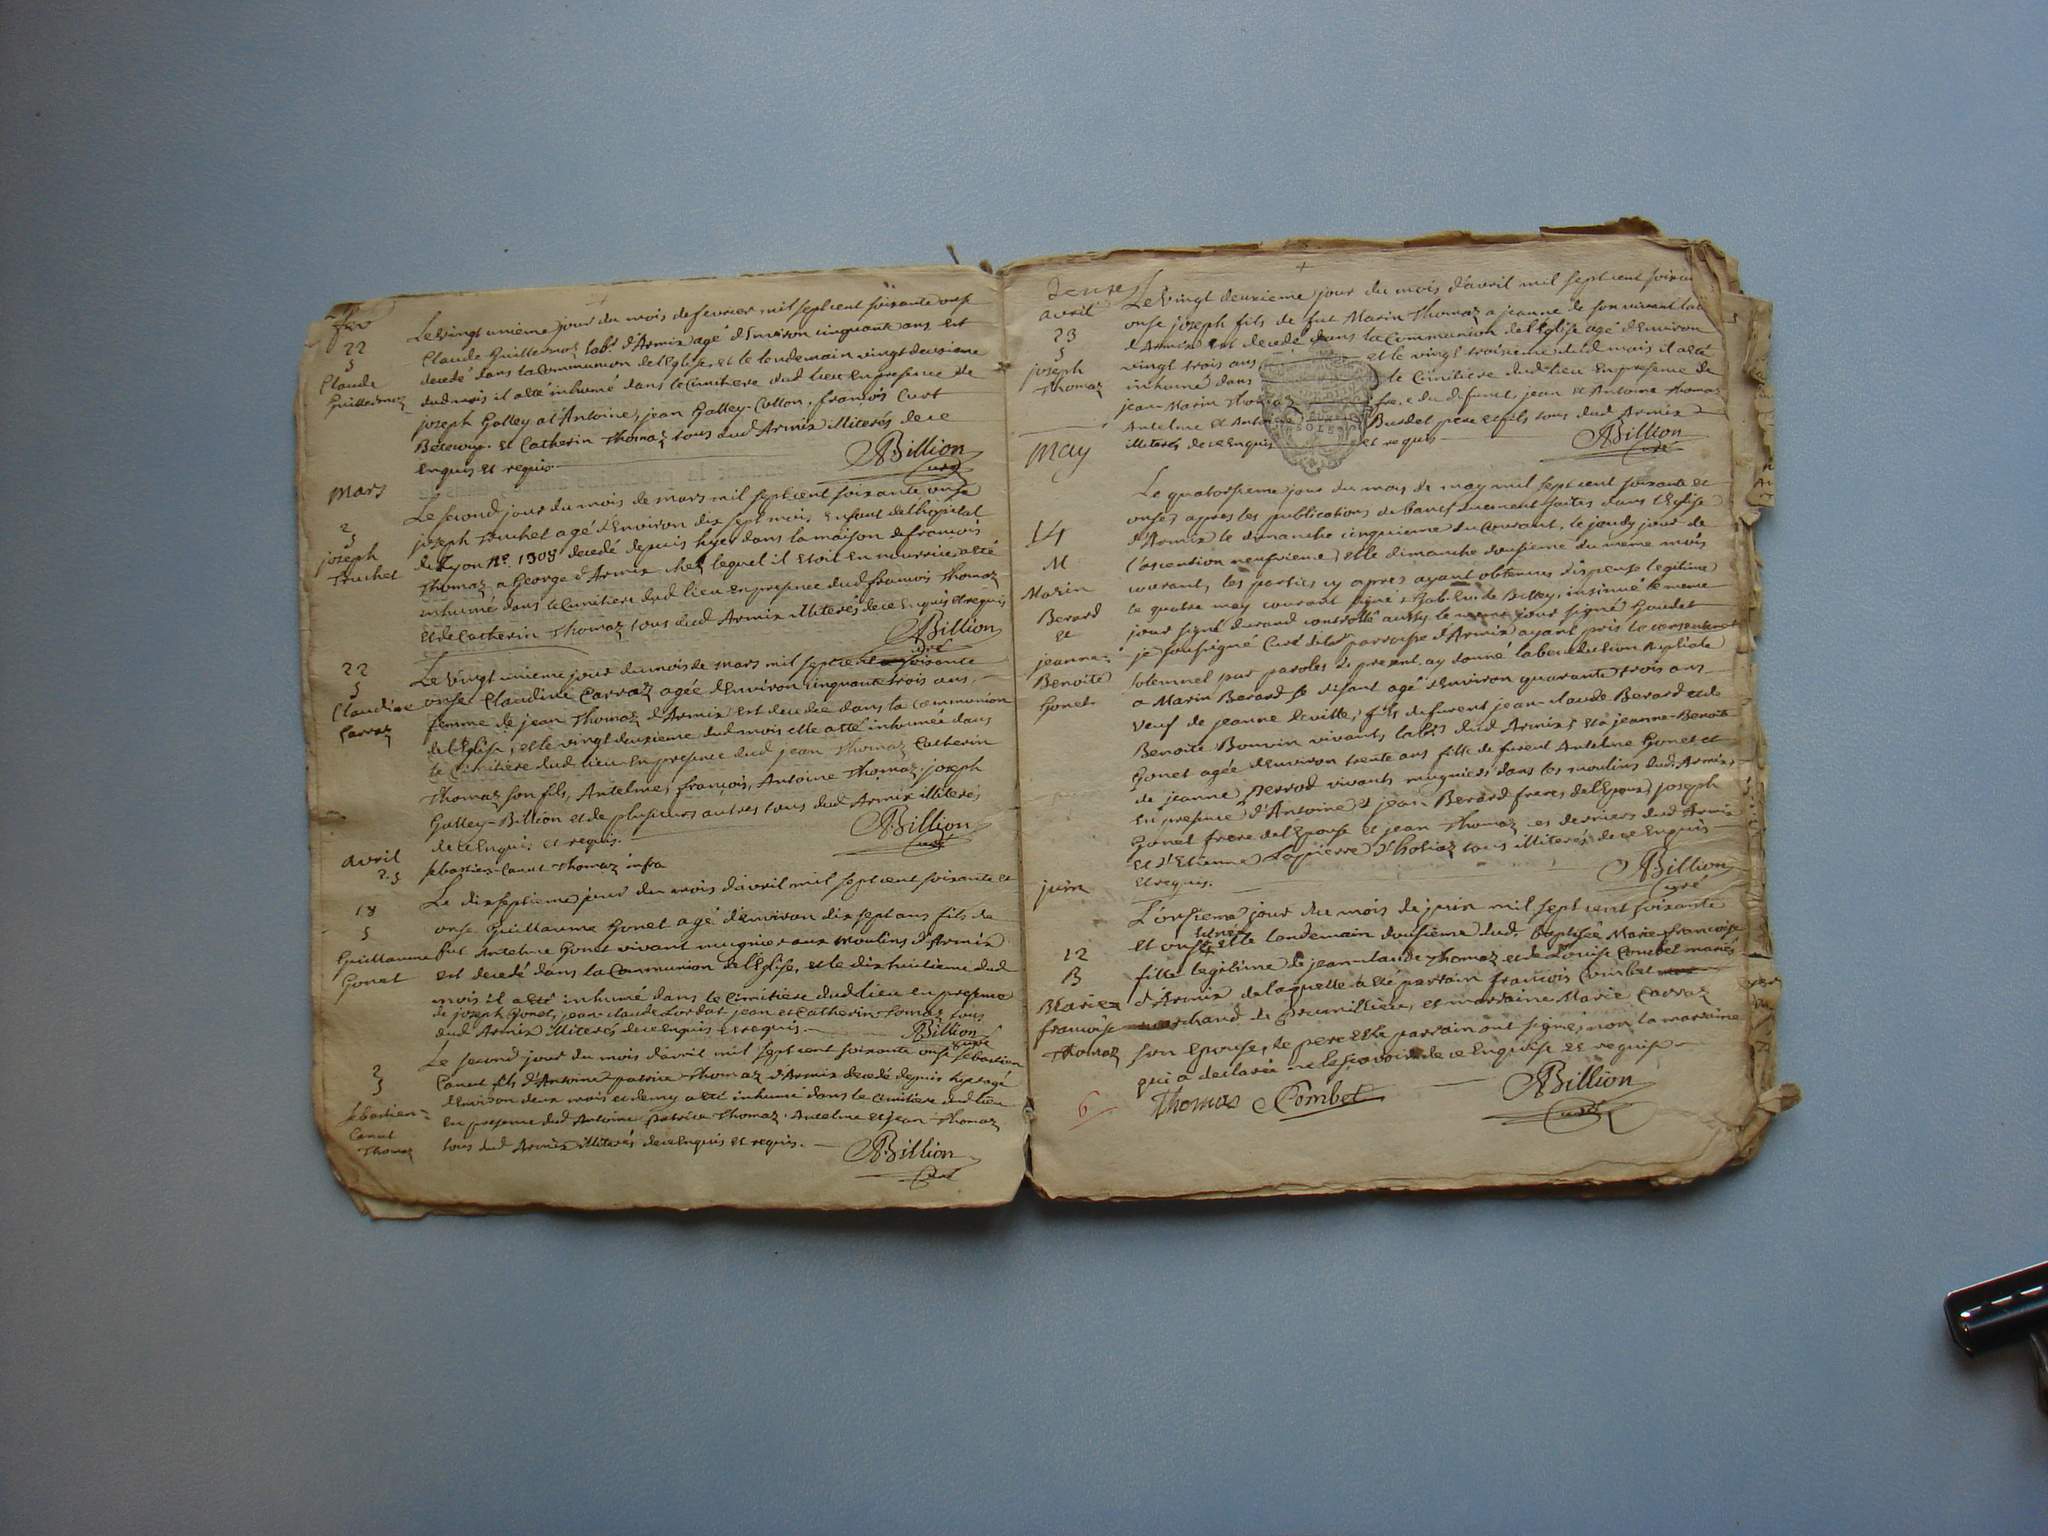 fev
22
S
Claude
Guillermoz
Le vingt unieme jour du mois de fevrier mil sept cent soixante onse
Claude Guillermoz labr. d'Armix agé d'Environ cinquante ans est
decedé dans la Communion de l'Eglise, et le lendemain vingt deuxieme
dud mois il a été inhumé dans le Cimitiere dud lieu en presence de
joseph Golley a l'Antoine, jean Golley-Cotton, francois Curt
et Catherin Thomaz tous dud Armix illiterés de ce
enquis et requis.
ABillion
curé
mars
2
S
joseph
Truchet
Le second jour du mois de mars mil sept cent soixante onse
joseph Truchet agé d'Environ dix sept mois Enfant de l'hopital
de Lyon No. 1308 decedé depuis hyer dans la maison de francois
Thomaz a George d'Armix chez lequel il etoit en nourrice a eté
inhumé dans le Cimitiere dud lieu en presence dud francois Thomaz
et de Catherin Thomaz tous dud Armix illiterés de ce enquis et requis
ABillion
curé
22
S
Claudine
Carraz
Le vingt unieme jour du mois de mars mil sept cent soixante
onse Claudine Carraz agée d'Environ cinquante trois ans,
femme de jean Thomaz d'Armix est decedée dans la Communion
de l'Eglise, et le vingt deuxieme dud mois elle a eté inhumée dans
le Cimitiere dud lieu en presence dud jean Thomaz Catherin
Thomaz son fils, Antelme, francois, Antoine Thomaz, joseph
Golley-Billion et de plusieurs autres tous dud Armix illiterés
de ce enquis et requis.
ABillion
curé
avril
2. S
sebastien-Canut-Thomaz infra
18
S
Guillaume
Gonet
Le dixseptieme jour du mois d'avril mil sept cent soixante et
onse Guillaume Gonet agé d'environ dix sept ans fils de
fut Antelme Gonet vivant mugnier aux moulins d'Armix
est decedé dans la Communion de l'Eglise, et le dixhuitieme dud
mois il a eté inhumé dans le Cimitiere dud lieu en presence
de joseph Gonet, jean-claude jean et Catherin Tomaz tous
dud Armix illiterés de ce enquis et requis.
ABillion
curé
2
S
sebastien-
Canut
Thomaz
Le second jour du mois d'avril mil sept cent soixante onse sebastien
Canut fils d'Antoine patrice Thomaz d'Armix decedé depuis hyer agé
d'Environ deux mois et demy a eté inhumé dans le Cimitiere dud lieu
en presence dud Antoine patrice Thomaz, Antelme et jean Thomaz
tous dud Armix illiterés de ce enquis et requis.
ABillion
curé
avril
23
S
joseph
Thomaz
Le vingt deuxieme jour du mois d'avril mil sept cent soixan
onse joseph fils de fut Marin Thomaz a jeanne de son vivant
d'Armix est decedé dans la Communion de l'Eglise agé d'Environ
vingt trois ans et le vingt troisieme dud mois il a eté
inhumé dans le Cimitiere dud lieu en presence de
jean-Marin Thomaz frere du defunt jean et Antoine Thomaz
Antelme et Antoine Burdet pere et fils tous dud Armix
illiterés de ce enquis et requis
ABillion
curé
May
14
M
Marin
Berard
et
jeanne-
Benoite
Gonet
Le quatorsieme jour du mois de may mil sept cent soixante et
onse, apres les publications de bancs duement faites dans l'Eglise
d'Armix le dimanche cinquieme du Courant, le jeudy jour de
l'ascention neufvieme, et le dimanche dousieme du meme mois
courant, les parties cy apres ayant obtenues dispense legitime
le quatre may courant signé Gab. Ev. de Belley, insinué le meme
jour signé durand controllé aussy le meme jour signé Goudet
je soussigné Curé de lad parroisse d'Armix ayant pris le consentemt
solemnel par paroles de present, ay donné la benediction nuptiale
a Marin Berard agé d'Environ quarante trois ans
veuf de jeanne fils de furent jean-claude Berard et de
Benoite Bonvin vivants labrs dud Armix, et a jeanne-Benoite
Gonet agée d'Environ trente ans fille de furent Antelme Gonet et
de jeanne perrod vivants mugniers dans les moulins dud Armix,
en presence d'Antoine et jean Berard freres de l'Epoux, joseph
Gonet frere de l'Epouse et jean Thomaz ces derniers dud Armix
et d'Etienne Lapierre tous illiterés de ce enquis
et requis.
ABillion
curé
juin
12
B
Marie-
françoise
Thomaz
L'onsieme jour du mois de juin mil sept cent soixante
et onse est née et le lendemain dousieme dud. baptisée Marie-françoise
fille legitime de jean-claude Thomaz et de Louise Combet mariés
d'Armix de laquelle a eté parrain françois Combet
marchand de premillieu, et marraine Marie Carraz
son Epouse, le pere et le parrain ont signé, non la marraine
qui a declarée ne le sçavoir de ce enquise et requise
Thomas Combet ABillion
curé
6